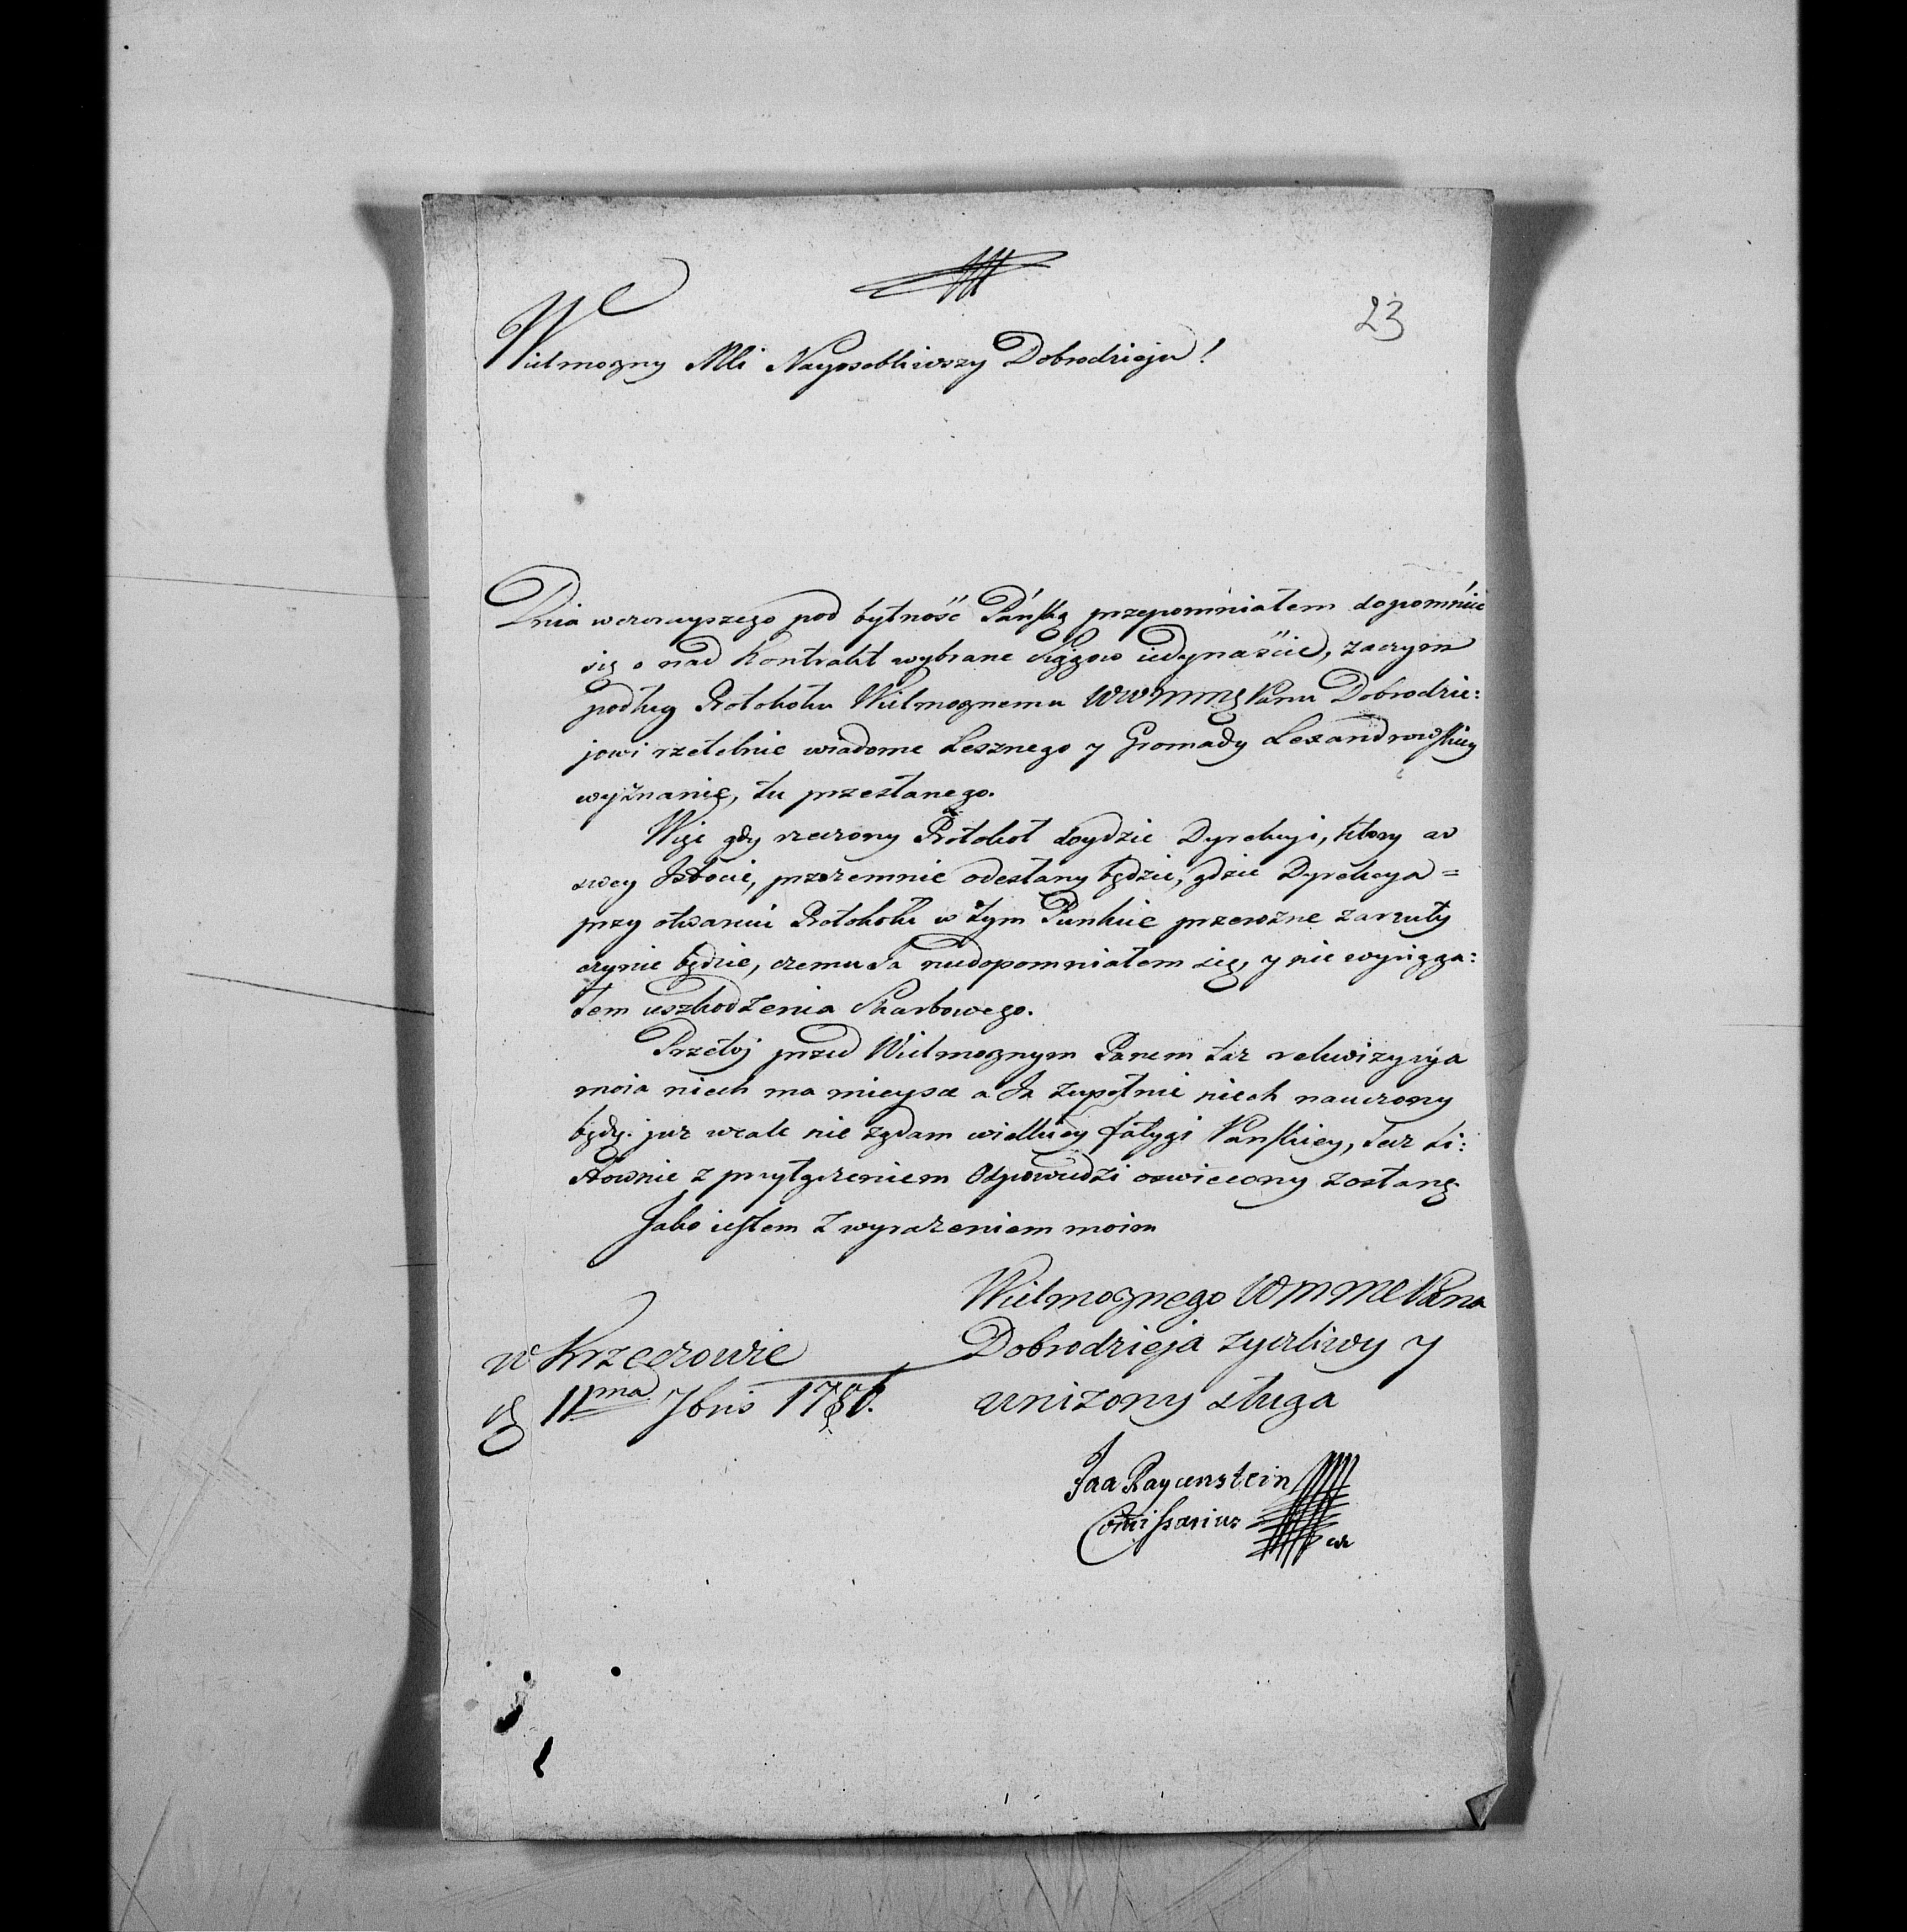 23
Wielmozny Mli Nayosobliwszy Dobrodzieju!
Dnia wczorayszego pod bytność Pańską przepomniałem dopomnić
się o nad Kontrakt wybrane Siągow iedynaście, zaczym
podług Protokołu Wielmoznemu Panu Dobrodzie:
jowi rzetelnie wiadome Lesznego y Gromady Lexandrowskiey
wyznanię, tu przesłanego.
Więc gdy rzeczony Protokoł doydzie Dyrekcyi, ktory w
swey Istocie, przezemnie odesłany będzie, gdzie Dyrekcya =
przy otwarciu Protokołu w tym Punkcie przerożne zarzuty
czynic będzie, czemu Ja niedopomniałem się, y nie wyciąga:
łem uszkodzenia Skarbowego.
Przetoż przed Wielmoznym Panem taz rekwizycyja
moia niech ma mieysce a Ja zupełnie niech nauczony
będę. juz wcale nie ządam wielkiey fatygi Panskiey, tez Li:
stownie z przyłączeniem Odpowiedzi oswiecony zostanę
Jako iestem z wyrazeniem moim
Wielmoznego Pana
Dobrodzieja zyczliwy y
unizony sługa
w Krzeczowie
d 11ma 7bris 178
Raycenstein
Comissarius